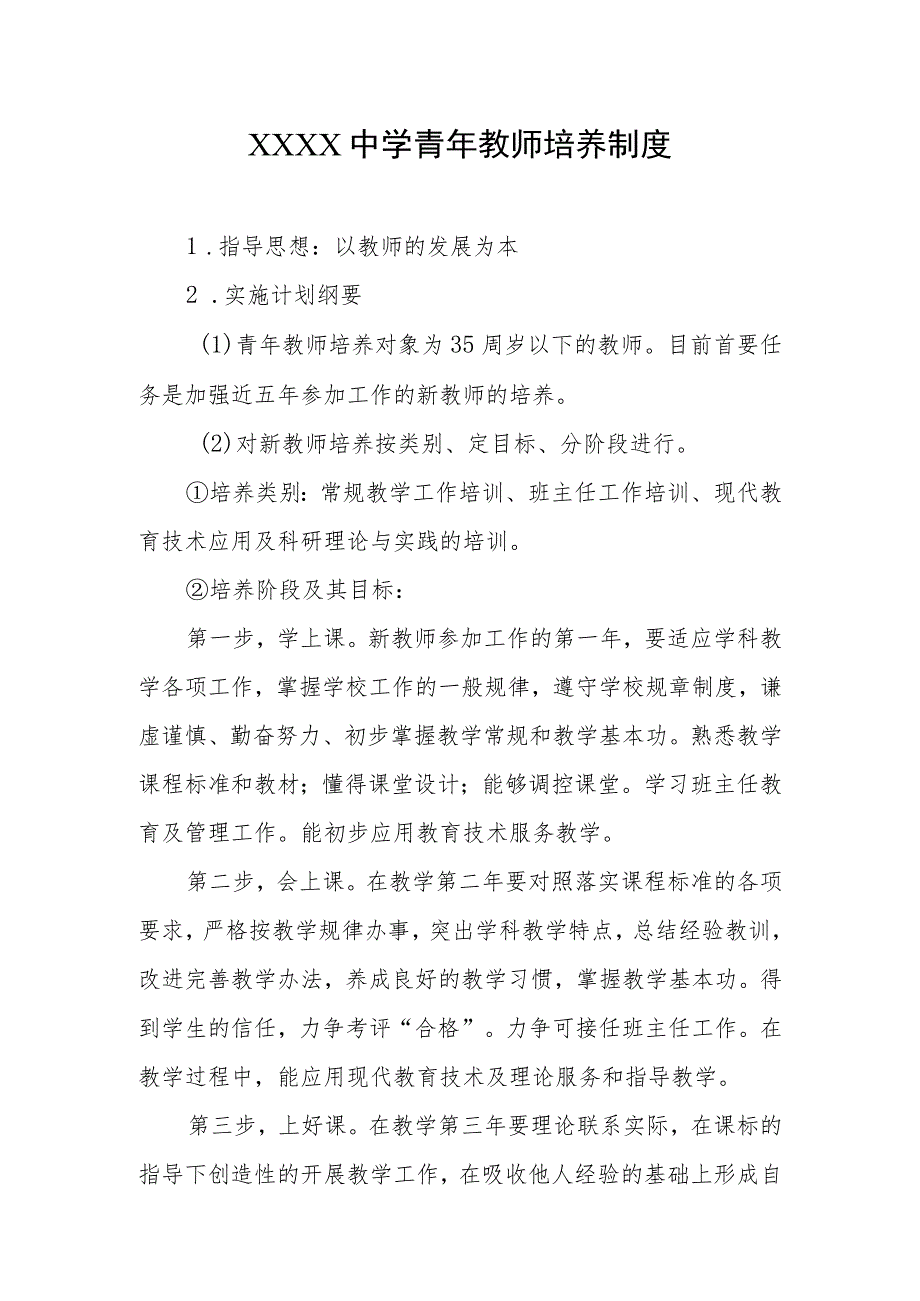 XXXX 中学青年教师培养制度
1 .指导思想：以教师的发展为本
2 .实施计划纲要
(1)青年教师培养对象为 35 周岁以下的教师。目前首要任
务是加强近五年参加工作的新教师的培养。
(2)对新教师培养按类别、定目标、分阶段进行。
①培养类别：常规教学工作培训、班主任工作培训、现代教
育技术应用及科研理论与实践的培训。
②培养阶段及其目标：
第一步，学上课。新教师参加工作的第一年，要适应学科教
学各项工作，掌握学校工作的一般规律，遵守学校规章制度，谦
虚谨慎、勤奋努力、初步掌握教学常规和教学基本功。熟悉教学
课程标准和教材；懂得课堂设计；能够调控课堂。学习班主任教
育及管理工作。能初步应用教育技术服务教学。
第二步，会上课。在教学第二年要对照落实课程标准的各项
要求，严格按教学规律办事，突出学科教学特点，总结经验教训，
改进完善教学办法，养成良好的教学习惯，掌握教学基本功。得
到学生的信任，力争考评“合格”。力争可接任班主任工作。在
教学过程中，能应用现代教育技术及理论服务和指导教学。
第三步，上好课。在教学第三年要理论联系实际，在课标的
指导下创造性的开展教学工作，在吸收他人经验的基础上形成自